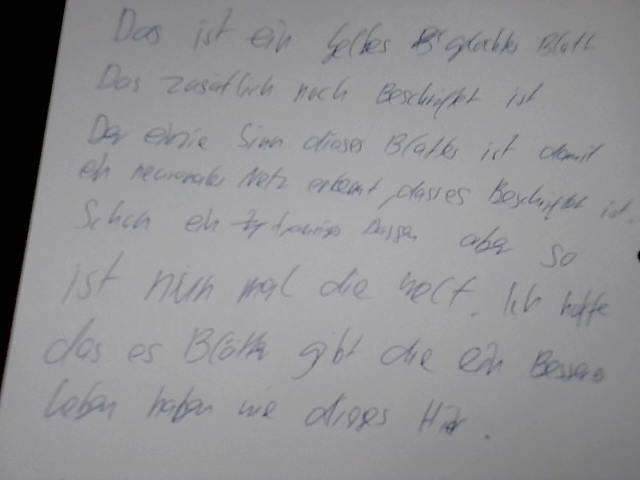 Das ist ein gelbes Blatt
Das zusätlich noch Beschriftet ist
Der einzie Sinn dieses Blattes ist damit
ein neuronales Netz erkennt, dass es Beschriftet ist.
Schon ein trauriges Dassen aber so
ist nun mal die Welt. Ich hoffe
das es Blätter gibt die ein Besseres
leben haben wie dieses Hier.